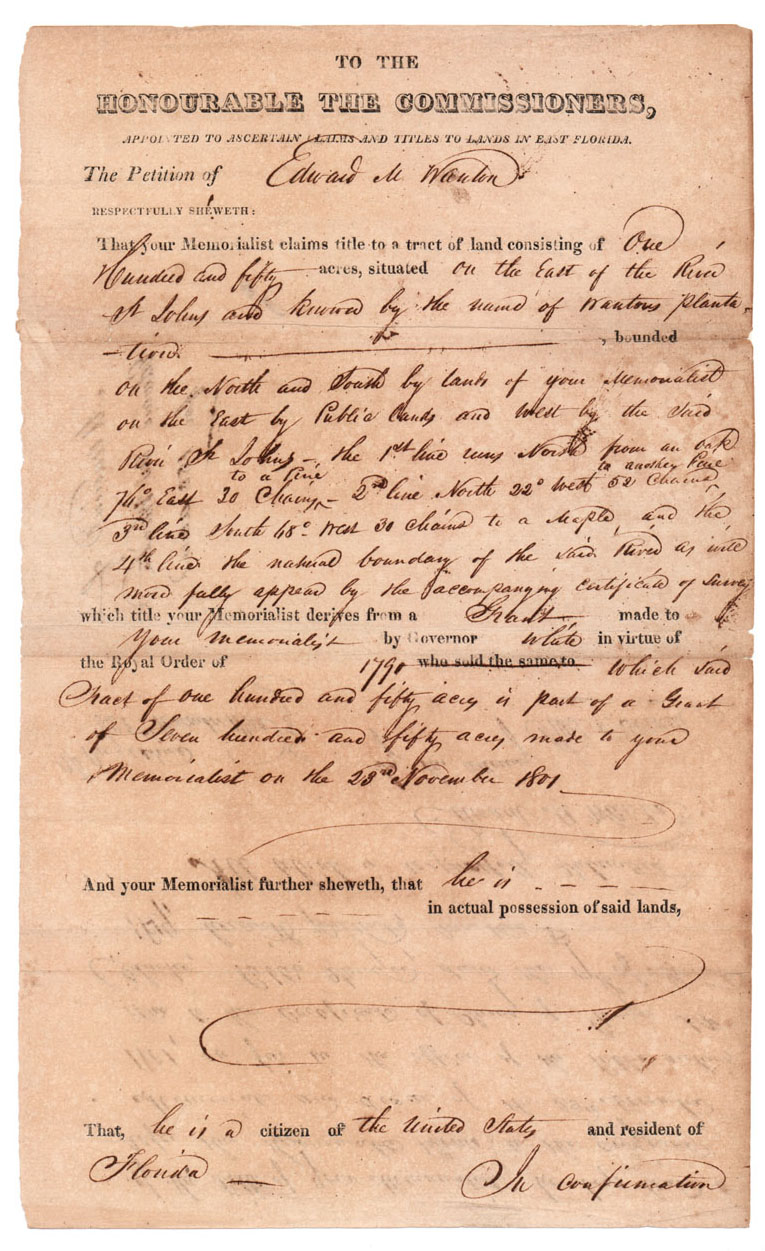 TO THE
HONOURABLE THE COMMISSIONERS,
APPOINTED TO ASCERTAIN CLAIMS AND TITLES TO LANDS IN EAST FLORIDA.
The Petition of Edward M Wanton
RESPECTFULLY SHEWETH:
That your Memorialist claims title to a tract of land consisting of One
Hundred and fifty acres, situated on the East of the River
St Johns and knowed by the name of Wantons planta-
-tion. , bounded
on the North and South by lands of your Memorialist
on the East by Public Lands and West by the said
River St Johns - the 1st line runs North from an oak
76° East 30 Chains to a Pine - 2nd line North 22° West 52 Chains to another Pine
3rd line South 48° West 30 chains to a Maple, and the
4th line the natural boundary of the said River as will
more fully appear by the accompanying certificate of Survey
which title your Memorialist derives from a Grant made to
your memorialist by Governor White in virtue of
the Royal Order of 1790 who sold the same to which said
Tract of one hundred and fifty acres is part of a Grant
of Seven hundred and fifty acres made to your
Memorialist on the 23rd November 1801
And your Memorialist further sheweth, that he is - - - -
- - - - - in actual possession of said lands,
That, he is a citizen of the United States and resident of
Florida — In confirmation